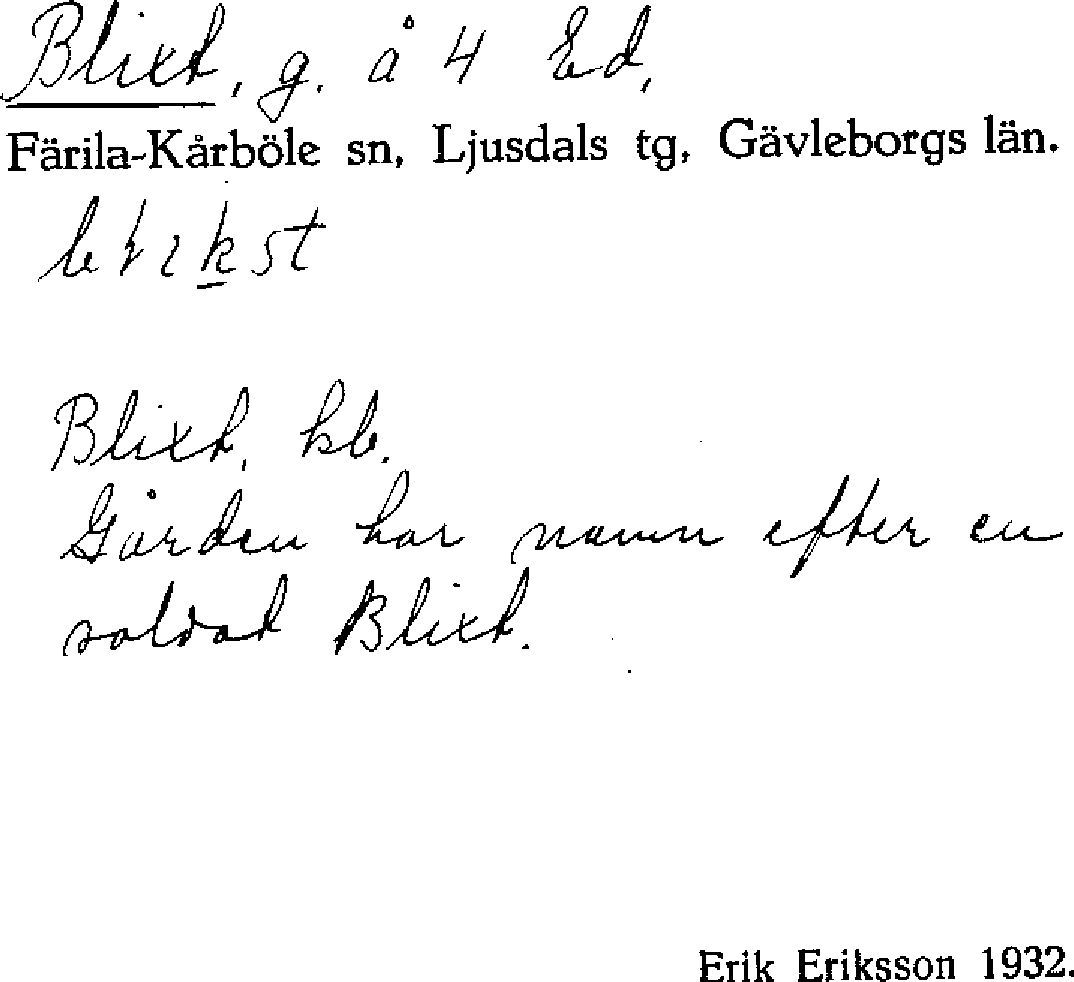 Blixt, g. å 4 Ed,
Färila-Kårböle sn, Ljusdals tg, Gävleborgs län.
Blixt, kb.
Gården har namn efter en
soldat Blixt.
Erik Eriksson 1932.